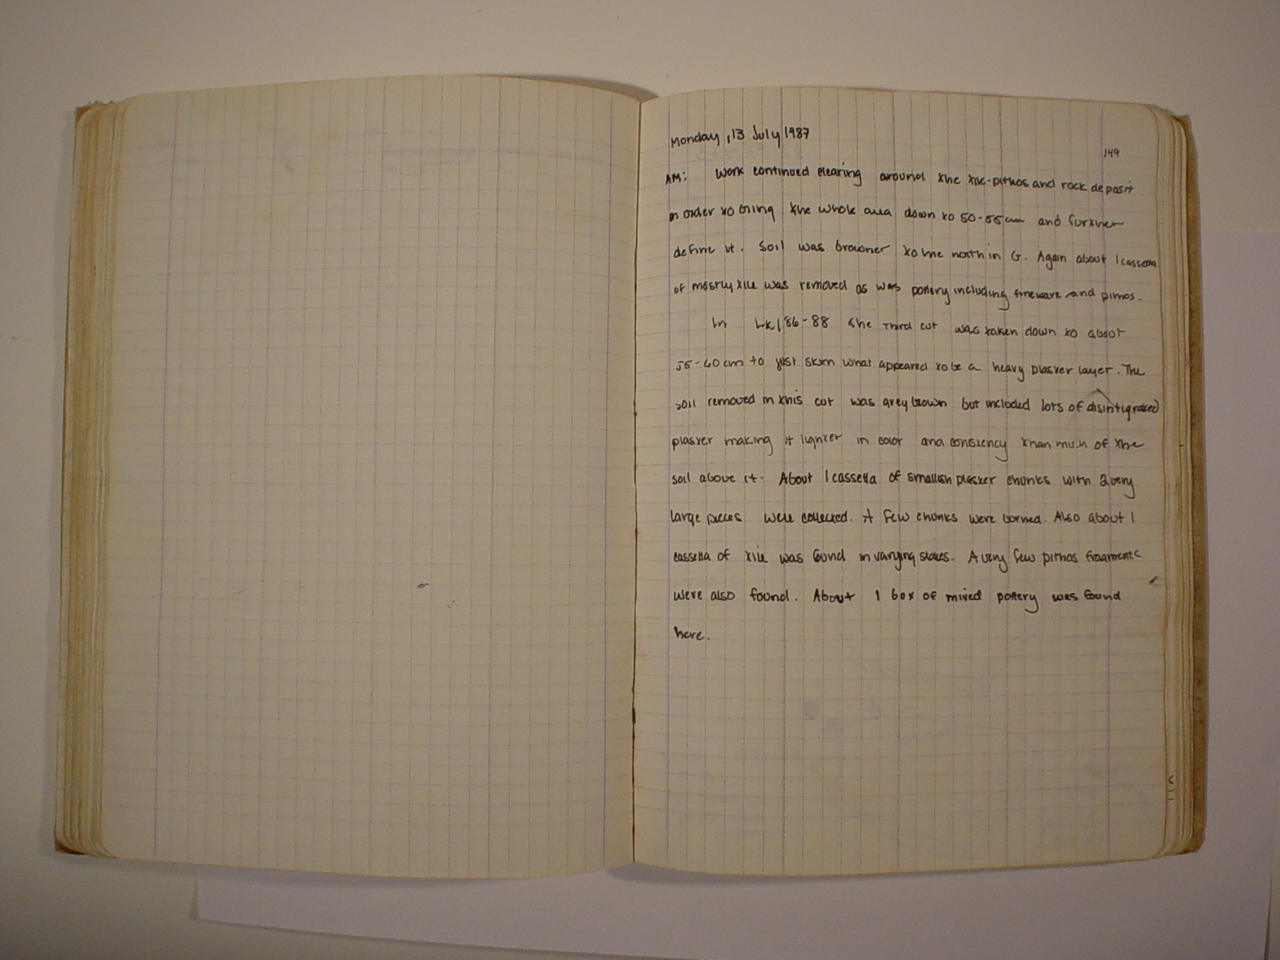 Monday, 13 July 1987
149
AM: Work continued clearing around the tile-pithos and rock deposit
in order to bring the whole area down to 50-55cm and further
define it. Soil was browner to the north in G. Again about 1 cassetta
of mostly tile was removed as was pottery including fineware and pithos.
In 86-88 the third cut was taken down to about
55-60cm to just skim what appeared to be a heavy plaster layer. The
soil removed in this cut was grey brown but included lots of disintigrated
plaster making it lighter in color and consiency than much of the
soil above it. About 1 cassetta of smallish plaster chunks with 2 very
large pieces were collected. A few chunks were burned. Also about 1
cassetta of tile was found in varying states. A very few pithos fragments
were also found. About 1 box of mixed pottery was found
here.